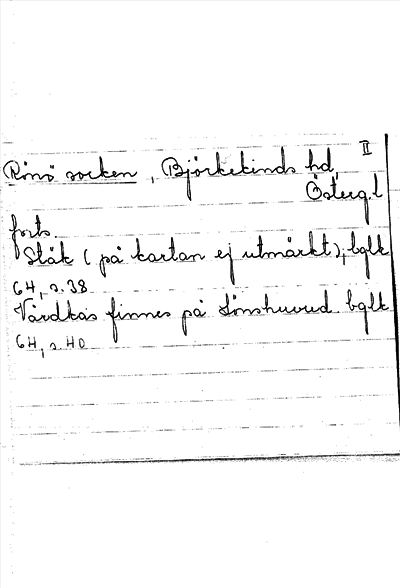 II
Rönö socken, Björkekinds hd,
Östergl
forts.
Stäk (på kartan ej utmärkt), bglk
64, s. 38
Vårdkas finnes på Lönshuvud. bglk
64, s. 40